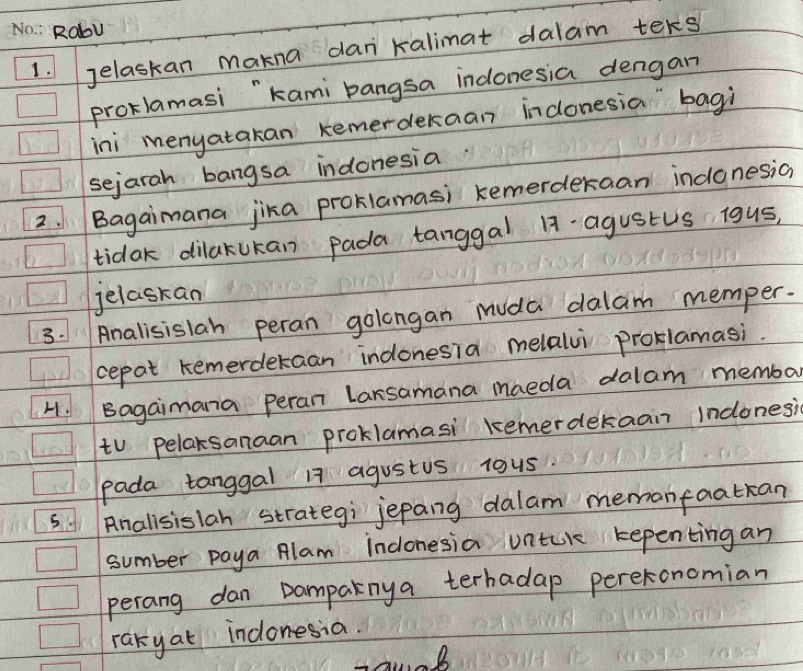 No.: Rabu
1. jelaskan makna dari kalimat dalam teks
proklamasi "kami bangsa indonesia dengan
ini menyatakan kemerdekaan indonesia" bagi
sejarah bangsa indonesia.
2. Bagaimana jika proklamasi kemerdekaan indonesia
tidak dilakukan pada tanggal 17-agustus 1945,
jelaskan
3. Analisislah peran golongan muda dalam memper-
cepat kemerdekaan indonesia melalui proklamasi.
4. Bagaimana peran Laksamana maeda dalam memban
tu pelaksanaan proklamasi kemerdekaan Indonesia
pada tanggal 17 agustus 1945.
5. Analisislah strategi jepang dalam memanfaatkan
sumber Daya Alam indonesia untuk kepentingan
perang dan Dampaknya terhadap perekonomian
rakyat indonesia.
Jawab